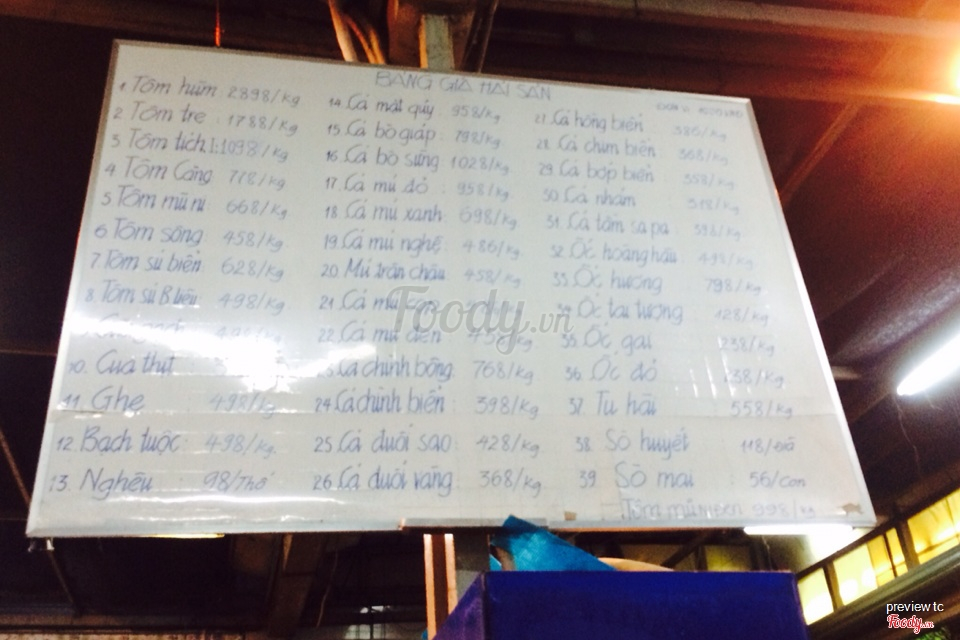 BẢNG GIÁ HẢI SẢN
1 Tôm hùm 2898/kg
2 Tôm tre : 1788/kg
3 Tôm tích 1:1098/kg
4 Tôm Càng 778/kg
5 Tôm mũ ni 668/kg
6 Tôm sống 458/kg
7 Tôm sú biển 628/kg
8 Tôm sú B liêu 498/kg
498/kg
10. Cua thịt
11 Ghẹ 498/kg
12. Bạch tuộc: 498/kg
13. Nghêu : 98/Thố
14. Cá mặt quỷ 958/kg
15. Cá bò giáp: 798/kg
16. Cá bò sừng 1028/kg
17. Cá mú đỏ : 958/kg
18. Cá mú xanh 698/kg
19. Cá mú nghệ: 486/kg
20. Mú trân châu : 458/kg
21. Cá mú
22. Cá mú đen
Cá chình bông 768/kg
24 Cá chình biển : 398/kg
25 Cá đuối sao: 428/kg
26 Cá đuối vàng: 368/kg
27. Cá hồng biển 386/kg
28 Cá chim biển : 368/kg
29. Cá bớp biển : 358/kg
30 Cá nhám 318/kg
31. Cá tầm sapa : 398/kg
32. Ốc hoàng hậu 498/kg
33. Ốc hương 798/kg
Ốc tai tượng 128/kg
35. Ốc gai 238/kg
36. Ốc đỏ /kg
37. Tu hài 558/kg
38. Sò huyết 118/Đĩa
39 Sò mai : 56/con
Tôm mũ ni đen 998/kg
Foody.vn
preview tc
Foody.vn